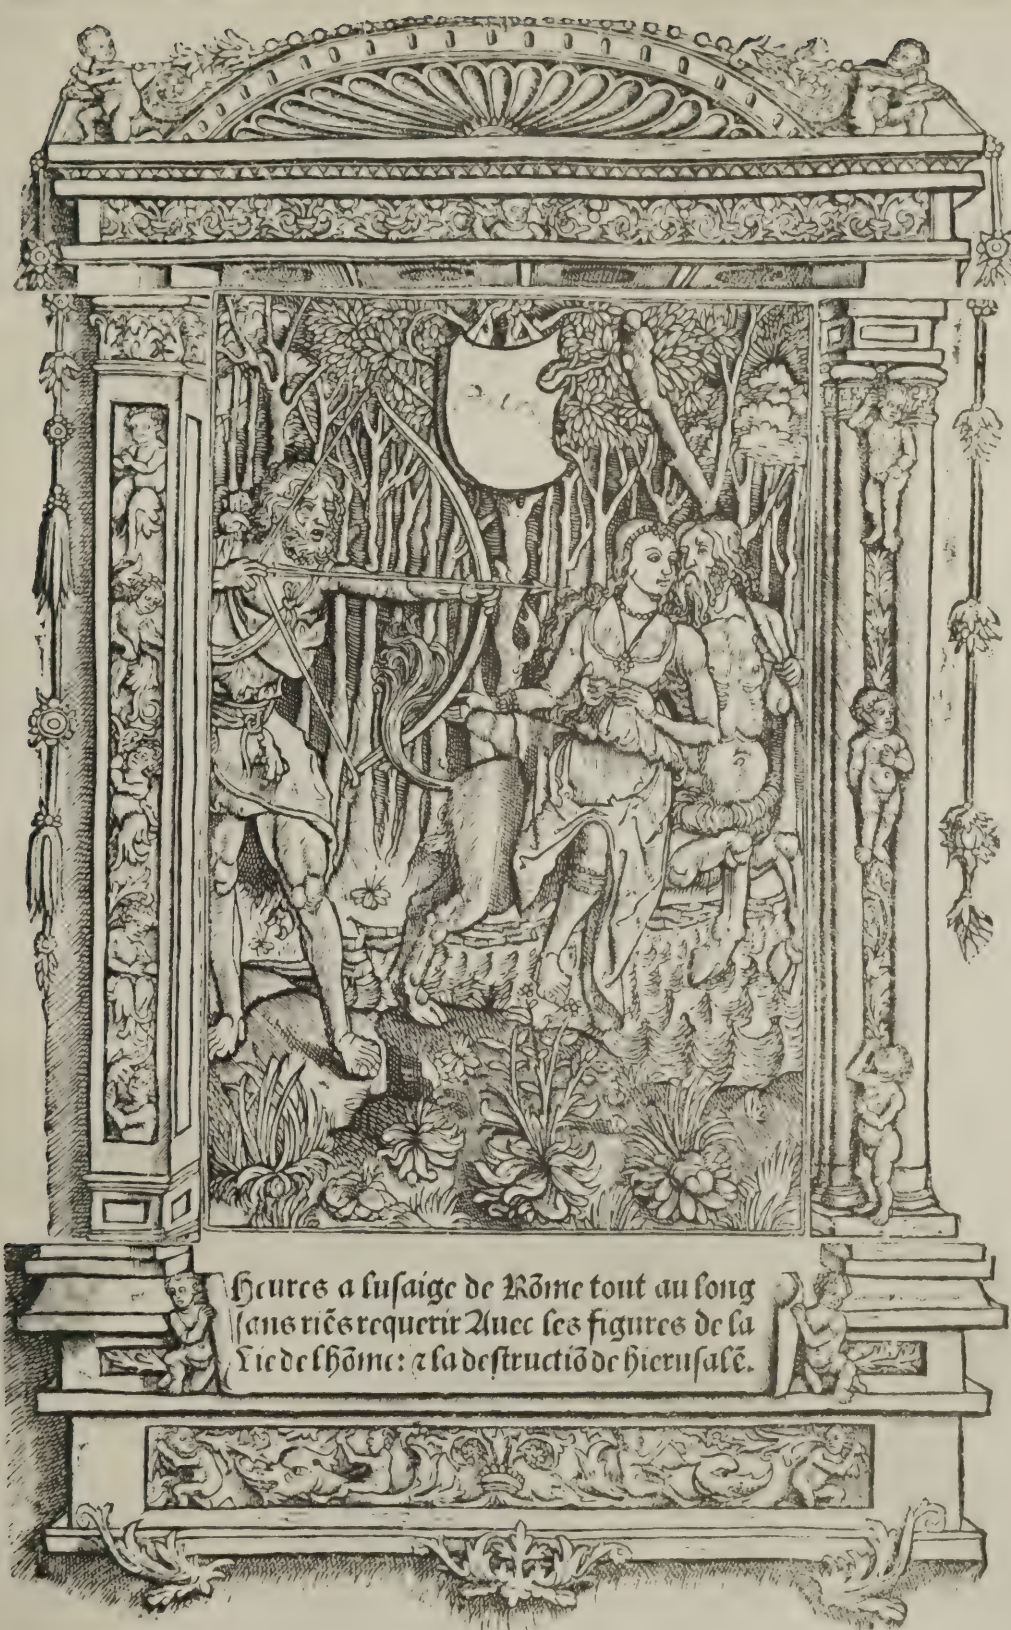 Heures a lusaige de Rõme tout au long
sans riẽs requerir Auec les figures de la
Vie de lhõme: ⁊ la destructiõ de hierusalẽ.